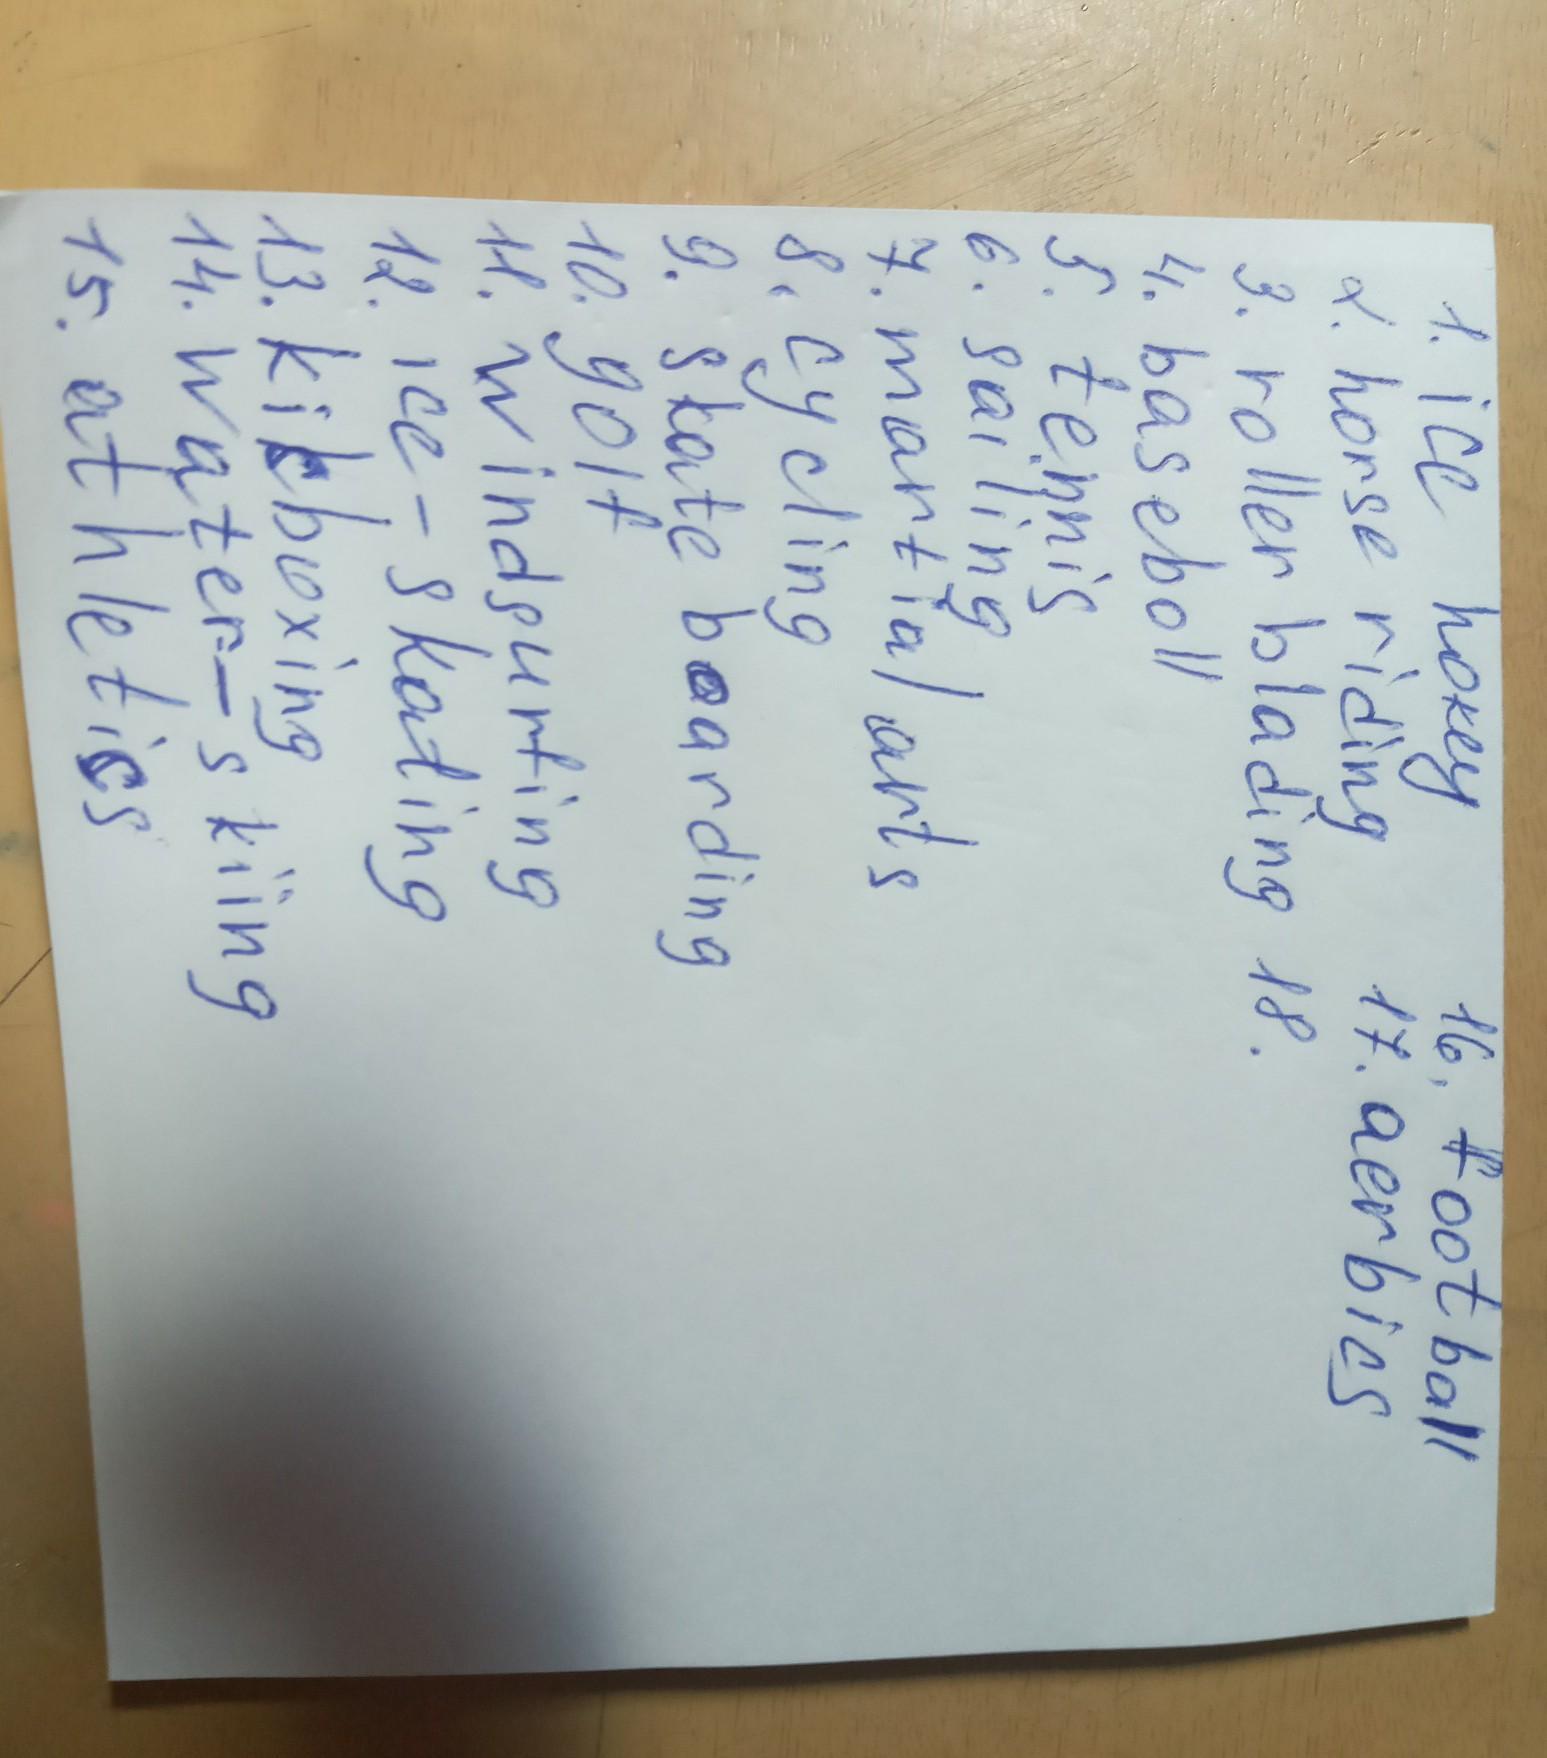 1. ice hokey
2. horse riding
3. roller blading
4. baseboll
5. tennis
6. sailing
7. martial arts
8. cycling
9. skate boarding
10. golf
11. windsurfing
12. ice-skating
13. kikboxing
14. water-skiing
15. athletics
16. football
17. aerbics
18.